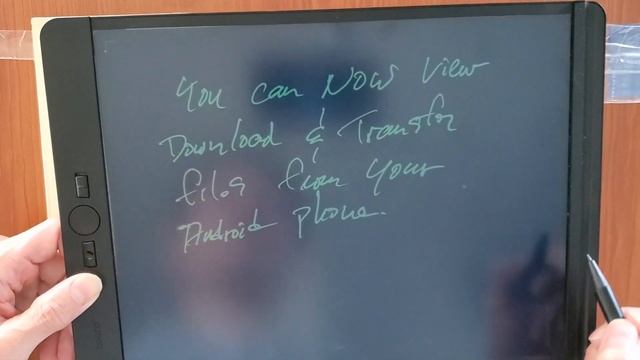 You can Now View
Download & Transfer
files from your
Android phone.